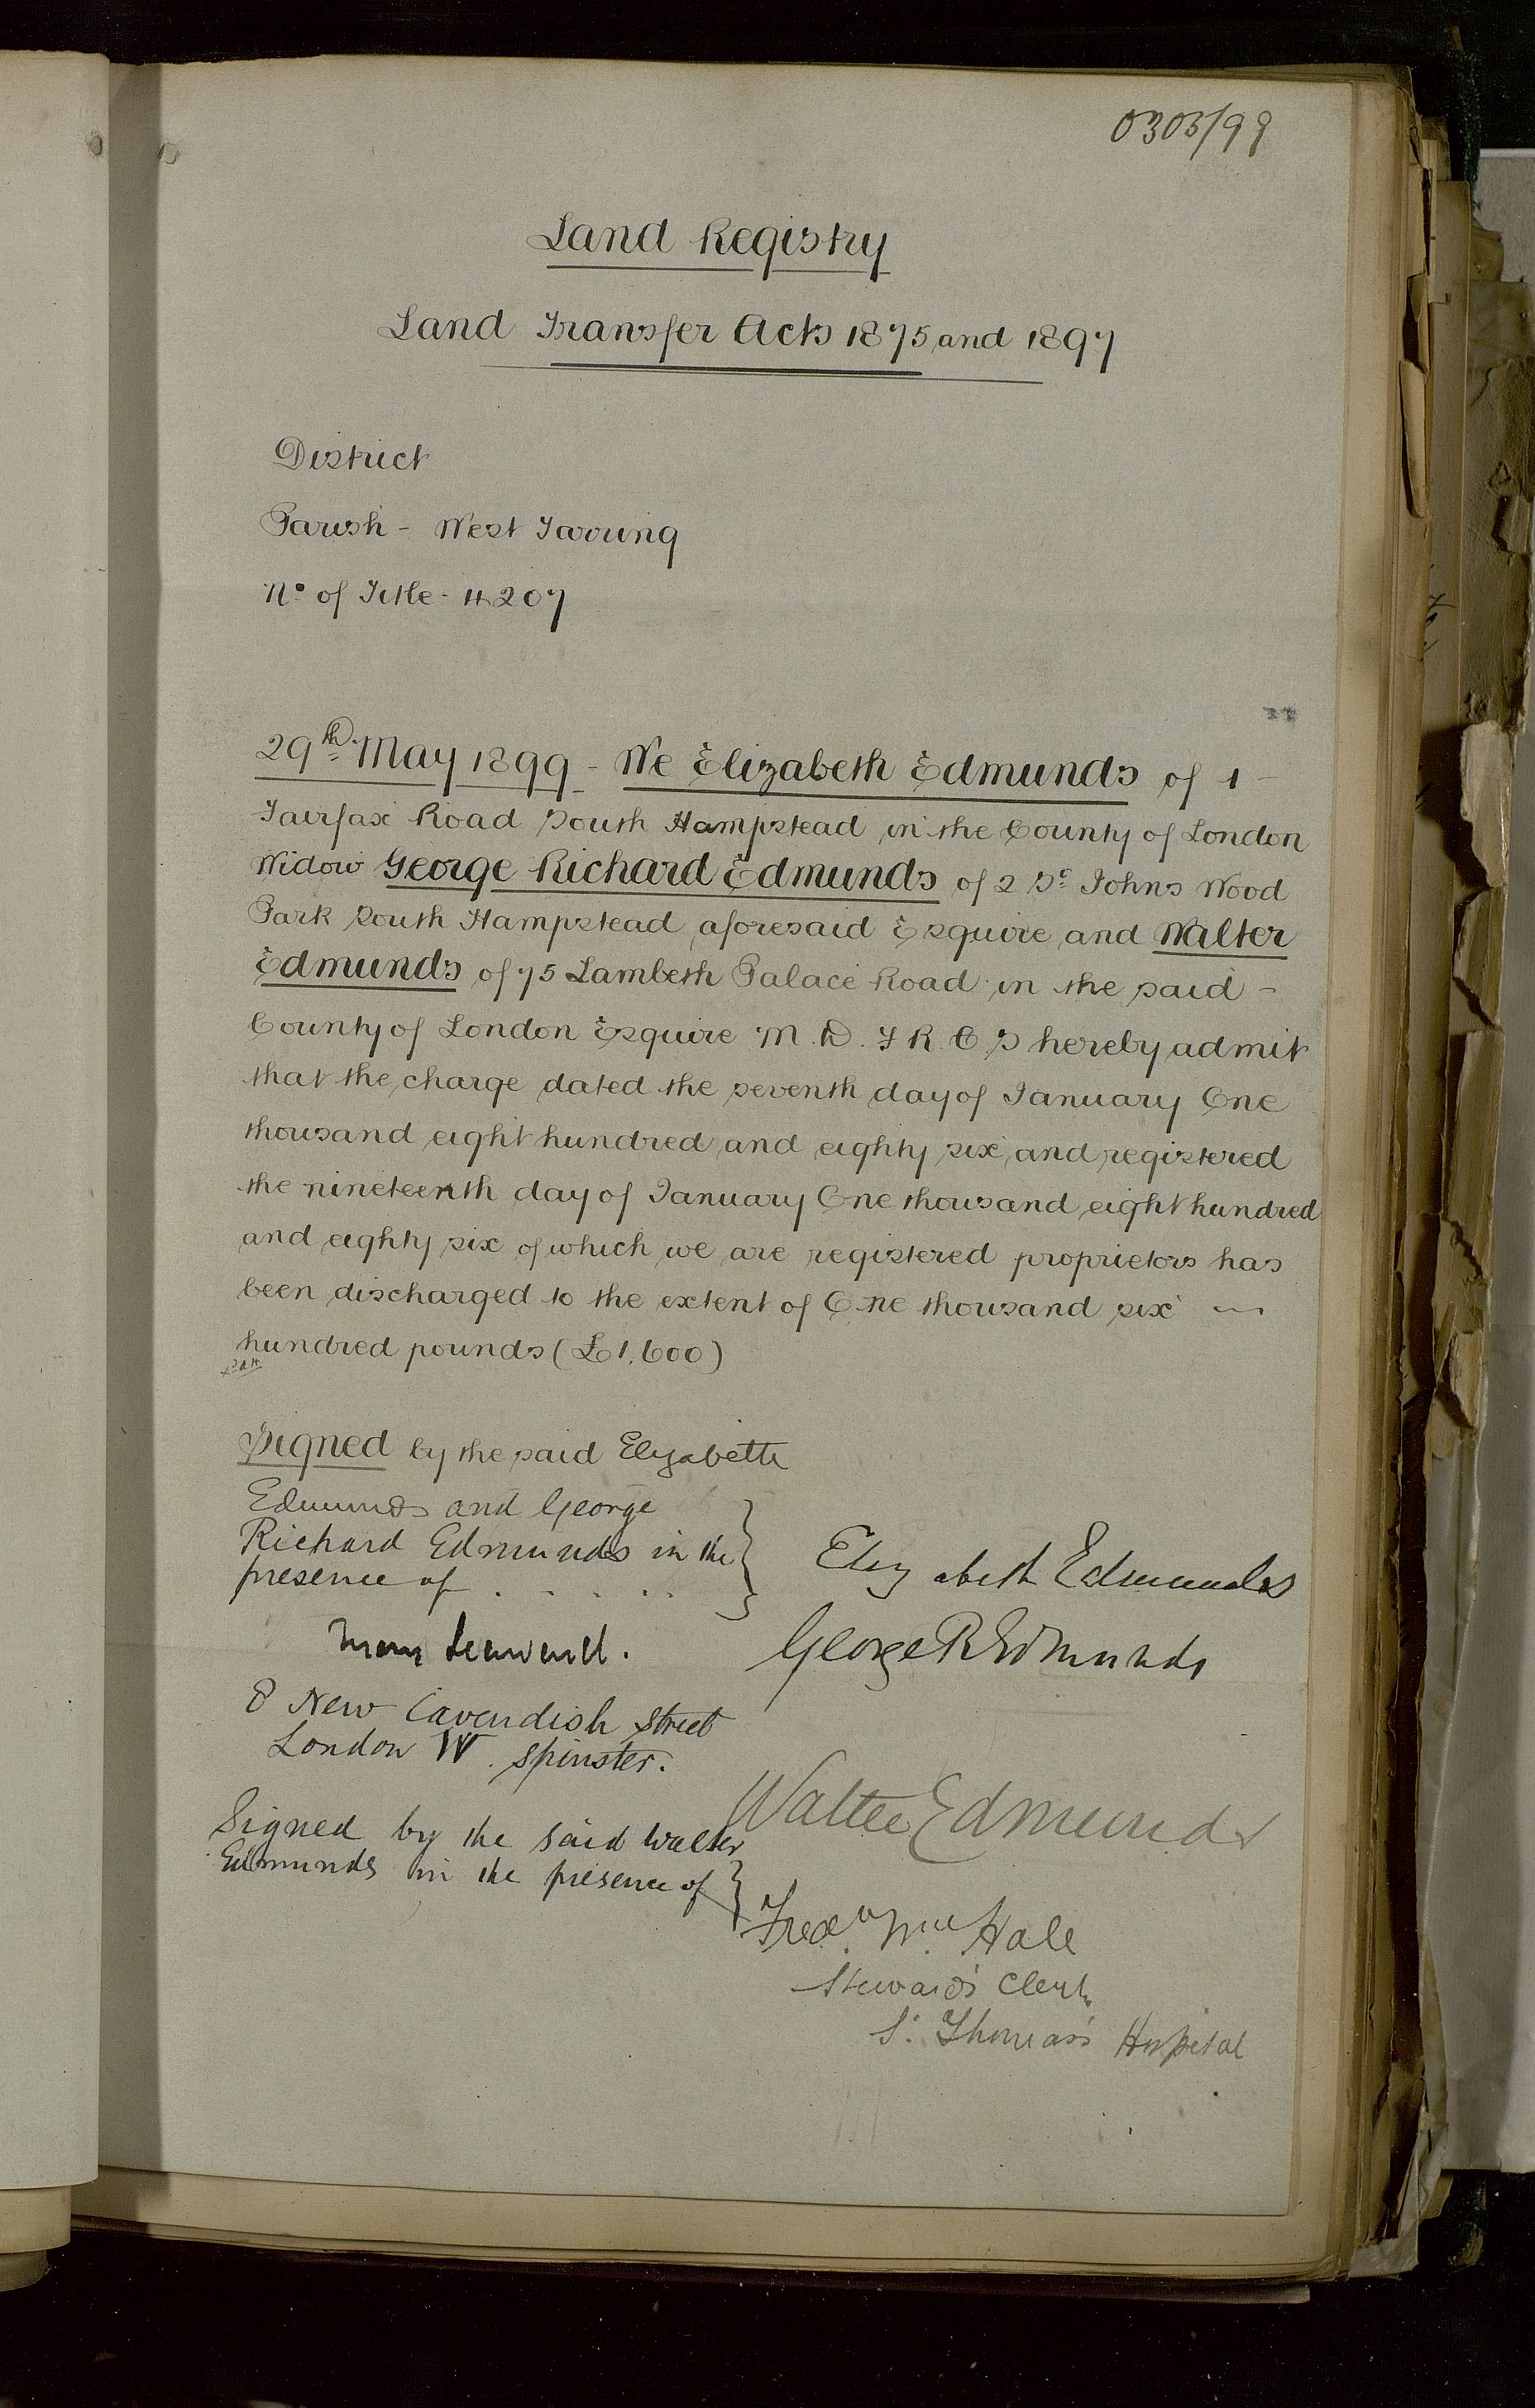 0303/99
Land Registry
Land Transfer Acts 1875 and 1897
District
Parish - West Tarring
No. of Title - 4207
29th May 1899 - We Elizabeth Edmunds of 1 -
Fairfax Road South Hampstead in the County of London
Widow George Richard Edmunds of 2 St Johns Wood
Park South Hampstead aforesaid Esquire and Walter
Edmunds of 75 Lambeth Palace Road in the said -
County of London Esquire M.D. F R C S hereby admit
that the charge dated the seventh day of January One
thousand eight hundred and eighty six and registered
the nineteenth day of January One thousand eight hundred
and eighty six of which we are registered proprietors has
been discharged to the extent of One thousand six
hundred pounds (£1,600)
Signed by the said Elizabeth
Edmunds and George
Richard Edmunds in the
presence of . . . . .
Elizabeth Edmunds
George R Edmunds
8 New Cavendish Street
London W. Spinster.
Walter Edmunds
Signed by the said Walter
Edmunds in the presence of
Fredk Wm Hale
Steward's Clerk
St Thomas's Hospital